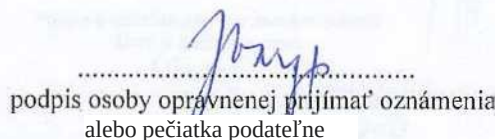 ........................................................
podpis osoby oprávnenej prijímať oznámenia
alebo pečiatka podateľne